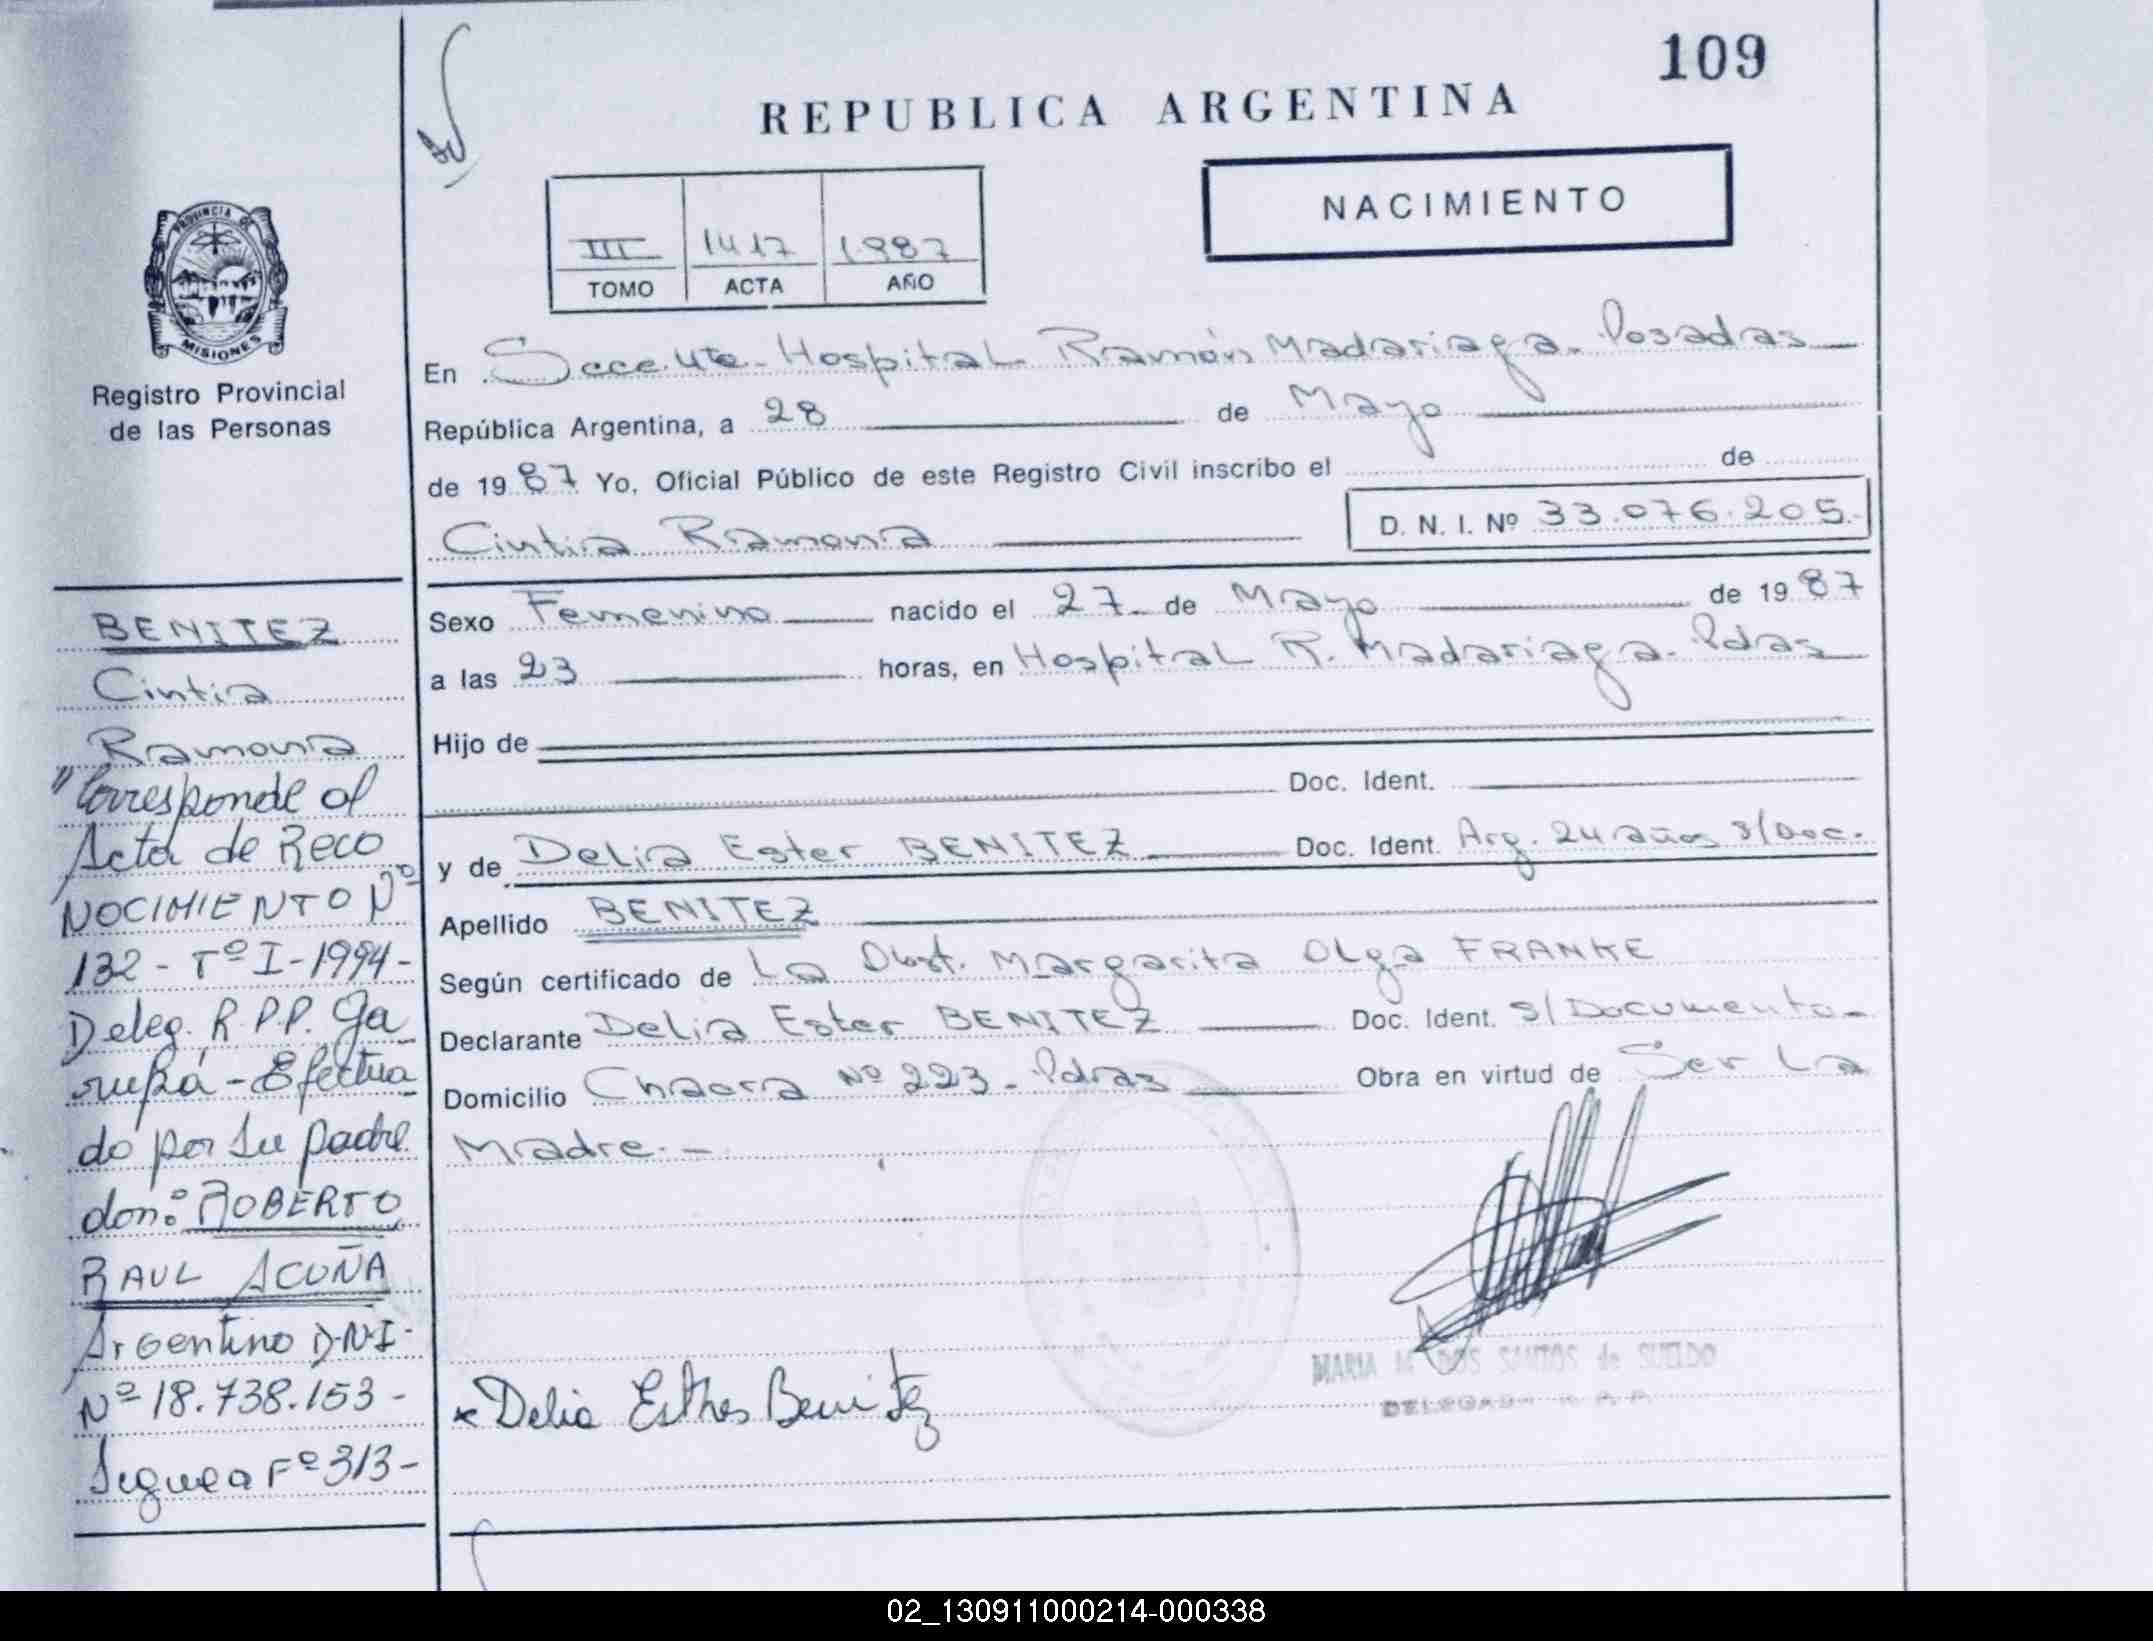 109
REPUBLICA ARGENTINA
NACIMIENTO
III 1417 1987
TOMO ACTA AÑO
PROVINCIA DE
MISIONES
Registro Provincial
de las Personas
En Secc. 4ta - Hospital Ramón Madariaga - Posadas
República Argentina, a 28 de Mayo
de 1987 Yo, Oficial Público de este Registro Civil inscribo el de
Cintia Ramona D. N. I. Nº 33.076.205.-
Sexo Femenino nacido el 27 de Mayo de 1987
a las 23 horas, en Hospital R. Madariaga - Pdas
Hijo de
Doc. Ident.
y de Delia Ester BENITEZ Doc. Ident. Arg. 24 años S/Doc.
Apellido BENITEZ
Según certificado de La Obst. Margarita Olga FRANKE
Declarante Delia Ester BENITEZ Doc. Ident. S/Documento-
Domicilio Chacra Nº 223 - Pdas Obra en virtud de Ser La
Madre.-
x Delia Esther Benitez
MARIA M. DOS SANTOS de SUELDO
DELEGADA R.P.P.
BENITEZ
Cintia
Ramona
"Corresponde al
Acta de Reco
NOCIMIENTO Nº
132 - Tº I - 1994 -
Deleg. R.P.P. Ga
rupá - Efectua
do por su padre
don: ROBERTO
RAUL ACUÑA
Argentino D.N.I.
Nº 18.738.153 -
Sigue a Fº 313 -
02_130911000214-000338